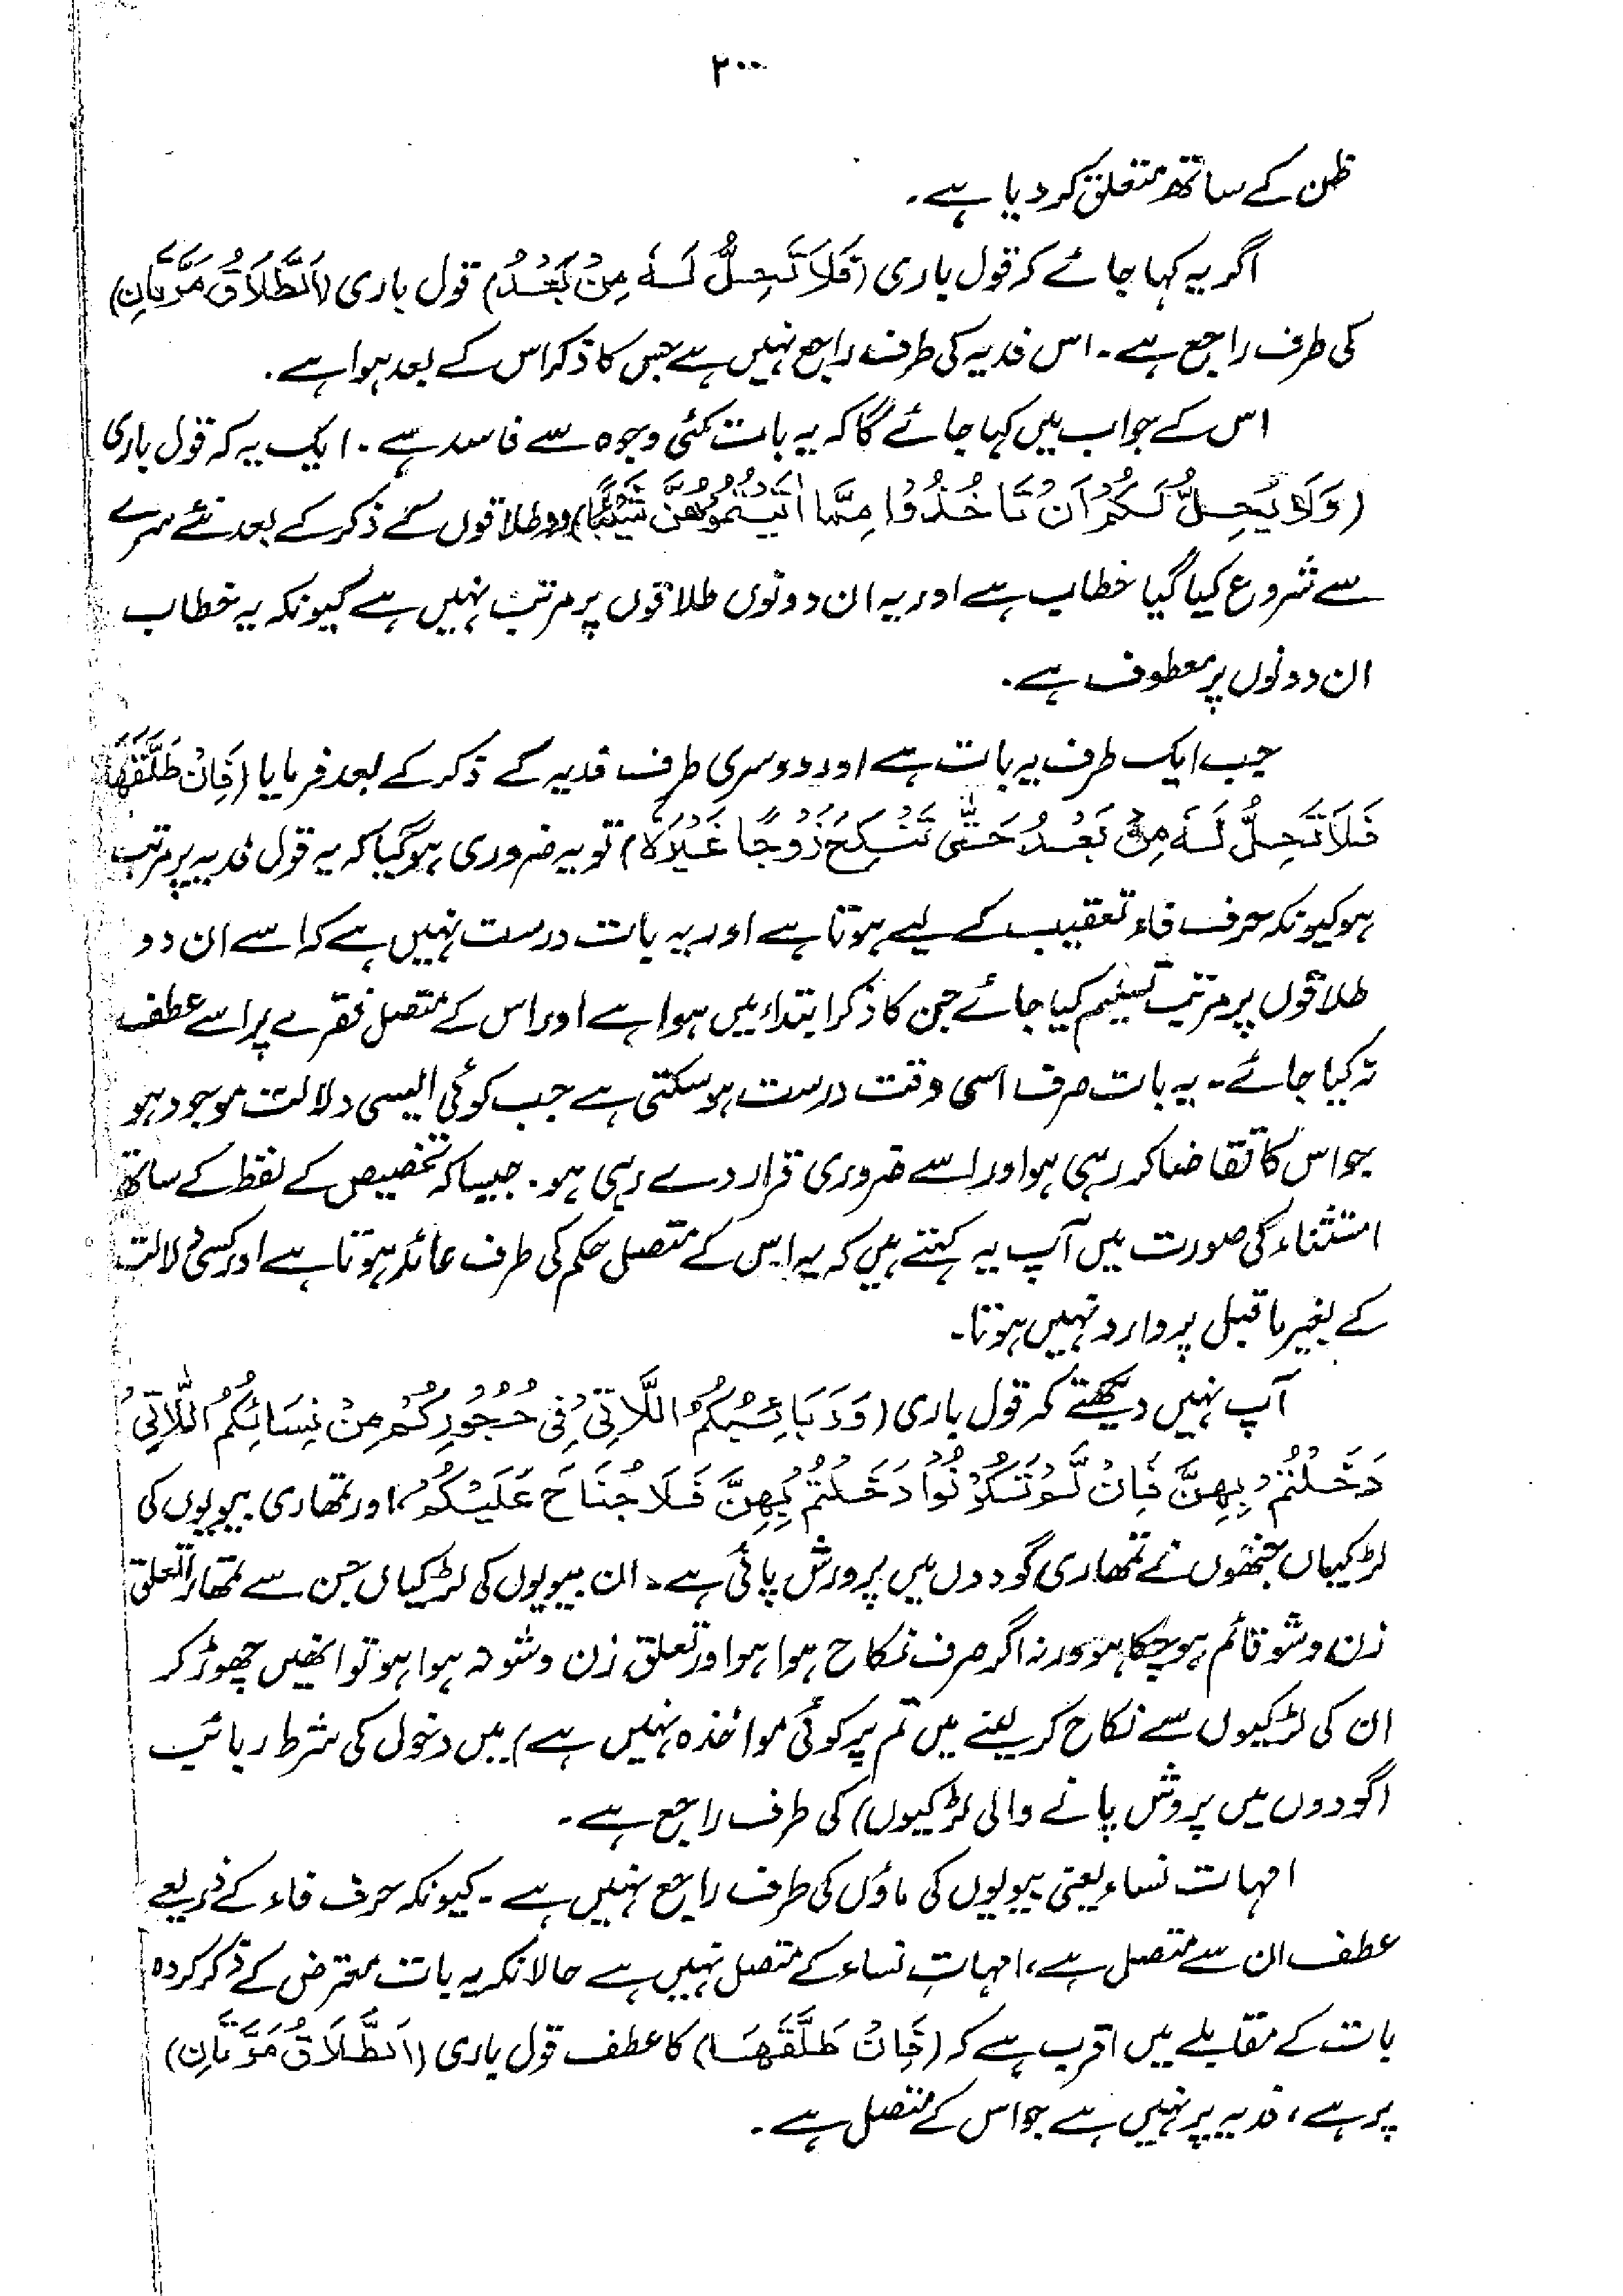 ۲۰۰
ظن کے ساتھ متعلق کر دیا ہے۔
اگر یہ کہا جائے کہ قول باری (فَلَا تَحِلُّ لَهٗ مِنْ بَعْدُ) قول باری (اَلطَّلَاقُ مَرَّتَانِ)
کی طرف راجع ہے۔ اس فدیہ کی طرف راجع نہیں ہے جس کا ذکر اس کے بعد ہوا ہے۔
اس کے جواب میں کہا جائے گا کہ یہ بات کئی وجوہ سے فاسد ہے۔ ایک یہ کہ قول باری
(وَلَا يَحِلُّ لَكُمْ اَنْ تَاْخُذُوْا مِمَّا اٰتَيْتُمُوْهُنَّ شَيْئًا) دو طلاقوں کے ذکر کے بعد نئے سرے
سے شروع کیا گیا خطاب ہے اور یہ ان دونوں طلاقوں پر مرتب نہیں ہے کیونکہ یہ خطاب
ان دونوں پر معطوف ہے۔
جب ایک طرف یہ بات ہے اور دوسری طرف فدیہ کے ذکر کے بعد فرمایا (فَاِنْ طَلَّقَهَا
فَلَا تَحِلُّ لَهٗ مِنْ بَعْدُ حَتّٰى تَنْكِحَ زَوْجًا غَيْرَهٗ) تو یہ ضروری ہوگیا کہ یہ قول فدیہ پر مرتب
ہو کیونکہ حرف فاء تعقیب کے لیے ہوتا ہے اور یہ بات درست نہیں ہے کہ اسے ان دو
طلاقوں پر مرتب تسلیم کیا جائے جن کا ذکر ابتداء میں ہوا ہے اور اس کے متصل فقرے پر اسے عطف
نہ کیا جائے۔ یہ بات صرف اسی وقت درست ہو سکتی ہے جب کوئی ایسی دلالت موجود ہو
جو اس کا تقاضا کر رہی ہو اور اسے ضروری قرار دے رہی ہو۔ جیسا کہ تخصیص کے لفظ کے ساتھ
استثناء کی صورت میں آپ یہ کہتے ہیں کہ یہ اس کے متصل حکم کی طرف عائد ہوتا ہے اور کسی دلالت
کے بغیر ماقبل پر وارد نہیں ہوتا۔
آپ نہیں دیکھتے کہ قول باری (وَرَبَائِبُكُمُ اللَّاتِيْ فِيْ حُجُوْرِكُمْ مِنْ نِسَائِكُمُ اللَّاتِيْ
دَخَلْتُمْ بِهِنَّ فَاِنْ لَّمْ تَكُوْنُوْا دَخَلْتُمْ بِهِنَّ فَلَا جُنَاحَ عَلَيْكُمْ، اور تمھاری بیویوں کی
لڑکیاں جنھوں نے تمھاری گودوں میں پرورش پائی ہے۔ ان بیویوں کی لڑکیاں جن سے تمھارا تعلق
زن و شو قائم ہو چکا ہو ورنہ اگر صرف نکاح ہوا ہو اور تعلق زن و شو نہ ہوا ہو تو انھیں چھوڑ کر
ان کی لڑکیوں سے نکاح کر لینے میں تم پر کوئی مواخذہ نہیں ہے) میں دخول کی شرط ربائب
(گودوں میں پروش پانے والی لڑکیوں) کی طرف راجع ہے۔
امہات نساء یعنی بیویوں کی ماؤں کی طرف راجع نہیں ہے۔ کیونکہ حرف فاء کے ذریعے
عطف ان سے متصل ہے، امہاتِ نساء کے متصل نہیں ہے حالانکہ یہ بات معترض کے ذکر کردہ
بات کے مقابلے میں اقرب ہے کہ (فَاِنْ طَلَّقَهَا) کا عطف قول باری (اَلطَّلَاقُ مَرَّتَانِ)
پر ہے، فدیہ پر نہیں ہے جو اس کے متصل ہے۔